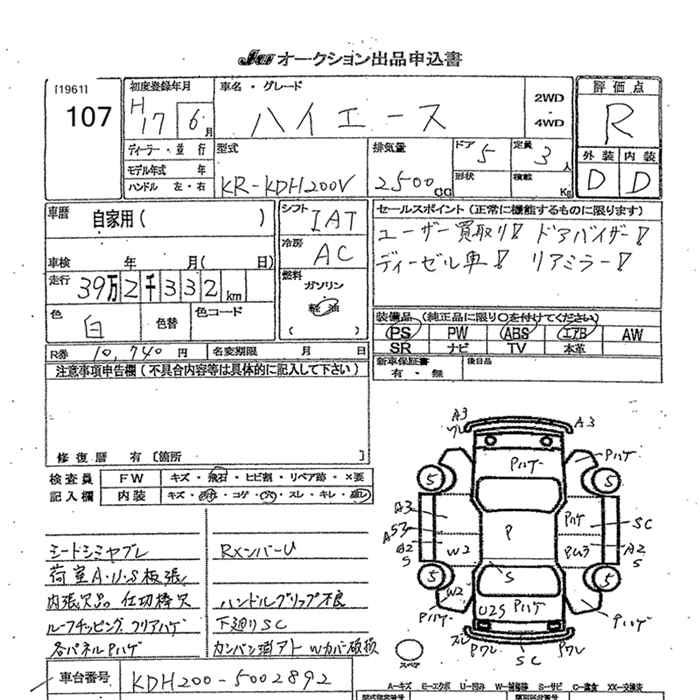 JAA オークション出品申込書
[1961]
107
初度登録年月
H 17 6月
車名・グレード
ハイエース
2WD
・
4WD
評価点
R
外装 内装
D D
ディーラー・並行
モデル年式 年
ハンドル 左・右
型式
KR-KDH200V
排気量
2500 CC
ドア 5
形状
定員 3 人
積載 Kg
車歴 自家用( )
車検 年 月( 日)
走行 39万2千332km
色 白
色替
色コード
シフト IAT
冷房 AC
燃料
ガソリン
軽油
( )
セールスポイント(正常に機能するものに限ります)
ユーザー買取り! ドアバイザー!
ディーゼル車! リアミラー!
装備品 (純正品に限り○を付けてください)
PS PW ABS エアB AW
SR ナビ TV 本革
新車保証書
有・無
後日品
R券 10,740円
名変期限 月 日
注意事項申告欄(不具合内容等は具体的に記入して下さい)
修復歴 有〔箇所
検査員
記入欄
FW キズ・飛石・ヒビ割・リペア跡・×要
内装 キズ・汚れ・コゲ・穴・スレ・キレ・
シートシミヤブレ
荷室A・U・S板張
内張欠品 仕切棒欠
ルーフチッピング フリアハゲ
各パネルPハゲ
RXンバーU
ハンドルグリップ不良
下廻りSC
カンバン消アト Wカバー破損
車台番号 KDH200-5002892
A3
ワレ
A3
Pハゲ
Pハゲ
5
5
A3
A
S3
A2
S
W2
P
Pハゲ
SC
A2
S
5
5
S
W2
U2S
Pハゲ
Pハゲ
Pハゲ
Pワレ
SC
Pワレ
スペア
A-キズ E-エクボ U-凹み W-補修跡 S-サビ C-腐食 XX-交換済